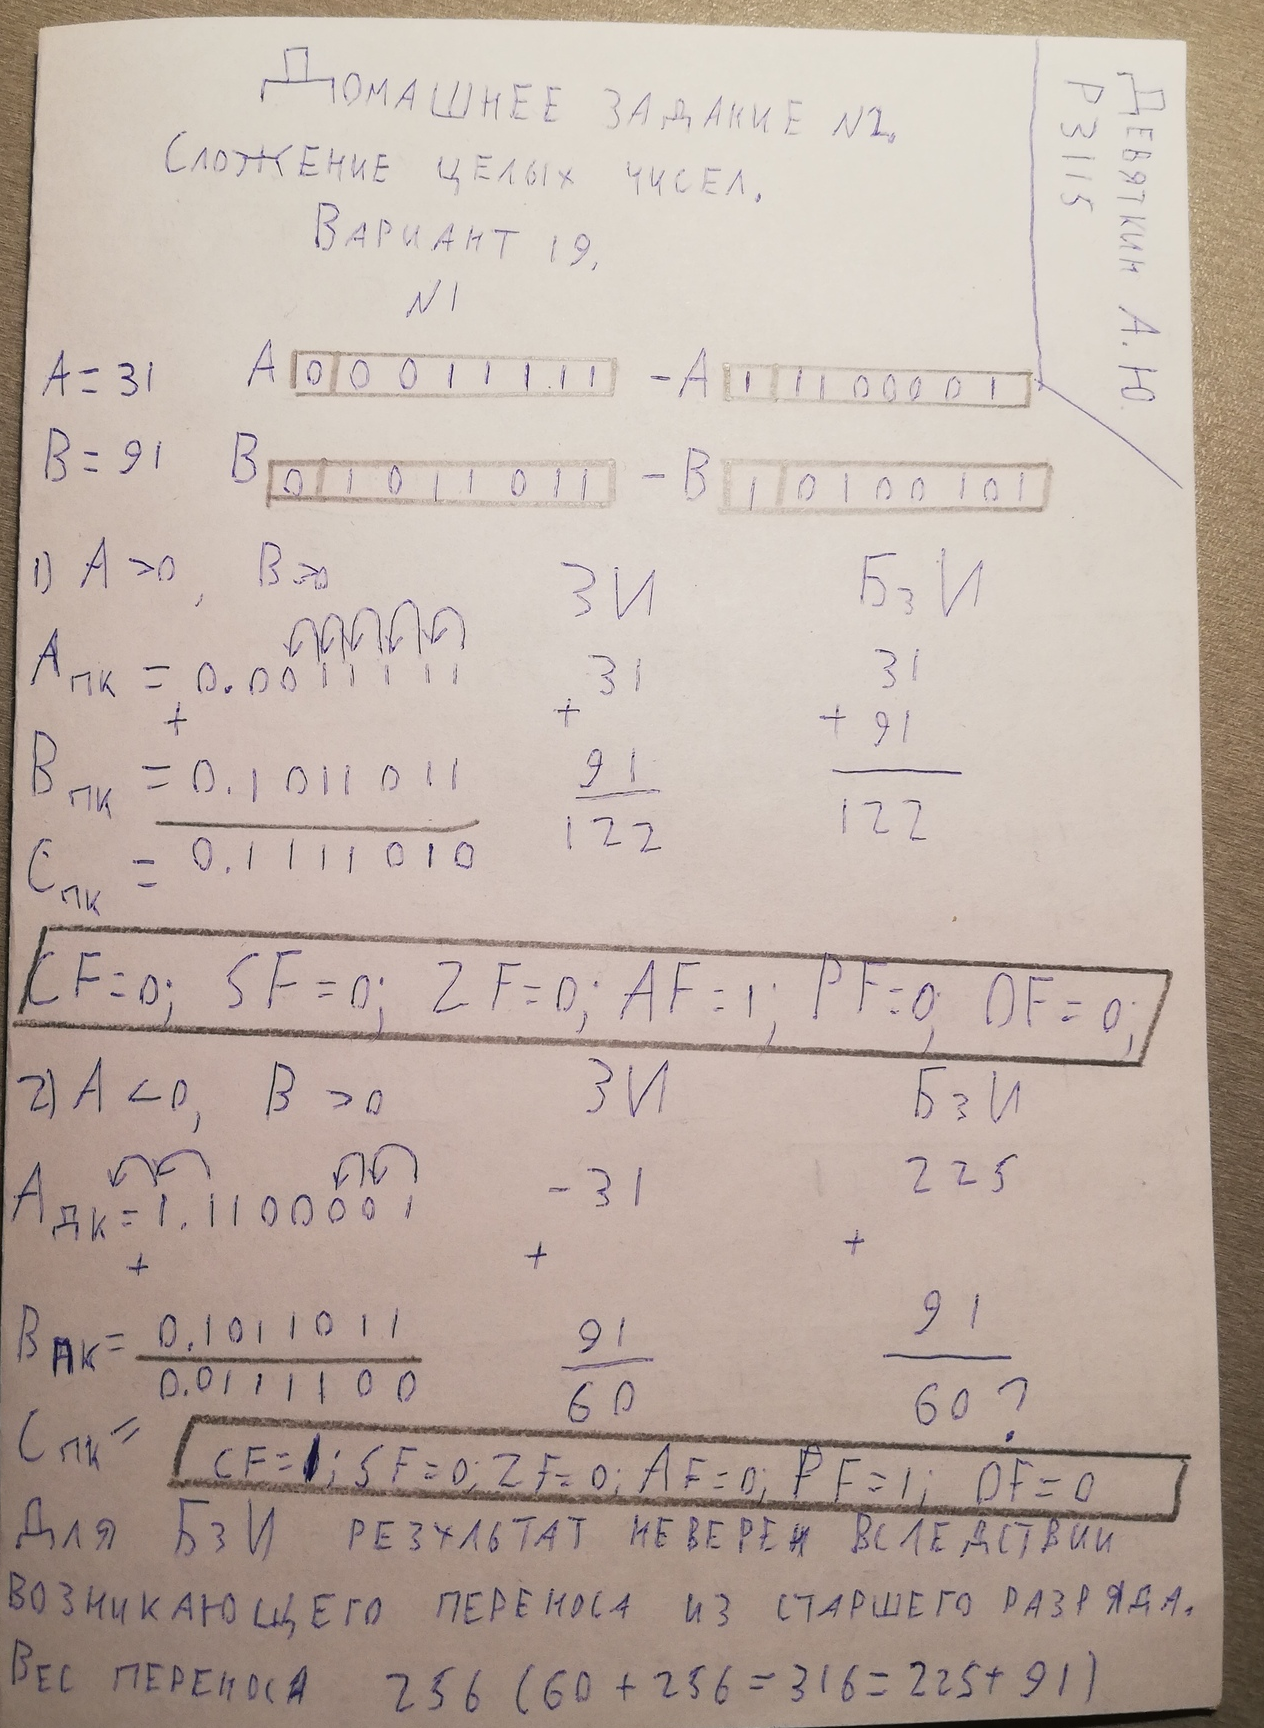 Домашнее задание N2.
Сложение целых чисел.
Вариант 19.
Девяткин А.Ю.
P3115
N1
A=31 A 0 0 0 1 1 1 1 1 -A 1 1 1 0 0 0 0 1
B=91 B 0 1 0 1 1 0 1 1 -B 1 0 1 0 0 1 0 1
1) A>0, B>0 ЗИ БзИ
Aпк = 0.0011111 31 31
+ + + 91
Bпк = 0.1011011 91
Cпк = 0.1111010 122 122
CF=0; SF=0; ZF=0; AF=1; PF=0; OF=0;
2) A<0, B>0 ЗИ БзИ
Aдк=1.1100001 -31 225
+ + +
Bпк= 0.1011011 91 91
Cпк= 0.0111100 60 60?
CF=1; SF=0; ZF=0; AF=0; PF=1; OF=0
Для БзИ результат неверен вследствии
возникающего переноса из старшего разряда.
Вес переноса 256 (60+256=316=225+91)